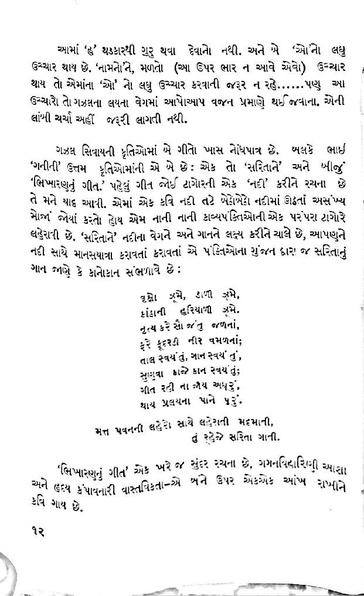 આમાં 'હું' થડકારથી ગુરુ થવા દેવાનો નથી. અને બે 'ઓ'નો લઘુ
ઉચ્ચાર થાય છે. 'નામનો'ને, મળતો (આ ઉપર ભાર ન આવે એવો) ઉચ્ચાર
થાય તો એમાંના 'ઓ' નો લઘુ ઉચ્ચાર કરવાની જરૂર ન રહે......પણુ આ
ઉચ્ચારો તો ગઝલના લયના વેગમાં આપોઆપ વજન પ્રમાણે થઈ જવાના. એની
લાંબી ચર્ચા અહીં જરૂરી લાગતી નથી.
ગઝલ સિવાયની કૃતિઓમાં બે ગીતો ખાસ નોંધપાત્ર છે. બલકે ભાઈ
'ગની'ની ઉત્તમ કૃતિઓમાંની એ બે છે: એક તો 'સરિતાને' અને બીજું
'ભિખારણનું ગીત.' પહેલું ગીત જોઈ ટાગોરની એક 'નદી' કરીને રચના છે
તે મને યાદ આવી. એમાં એક કવિ નદી તટે બેઠોબેઠો નદીમાં ઊઠતાં અસંખ્ય
મોજાં જોયાં કરતો હોય એમ નાની નાની કાવ્યપંક્તિઓની એક પરંપરા ટાગોરે
લહેરાવી છે. 'સરિતાને' નદીના વેગને અને ગાનને લક્ષ્ય કરીને ચાલે છે, આપણુને
નદી સાથે માનસયાત્રા કરાવતાં કરાવતાં એ પંક્તિઓના ગુંજન દ્વારા જ સરિતાનું
ગાન જાણે કે કાનોકાન સંભળાવે છે :
વૃક્ષો ઝૂમે, ડાળી ઝૂમે,
કાંઠાની હરિયાળી ઝૂમે.
નૃત્ય કરે સૌ જંતુ જળનાં,
ફરે કૂદરડી નીર વમળનાં;
તાલ સ્વયં તું, ગાન સ્વયં તું,
સુણવા કાજે કાન સ્વયં તું;
ગીત રહી ના જાય અધૂરું,
થાય પ્રલયના પાને પૂરું.
મત્ત પવનની લહેરો સાથે લહેરાતી મદમાની,
તું રહેજે સરિતા ગાતી.
'ભિખારણનું ગીત' એક ખરે જ સુંદર રચના છે, ગગનવિહારિણી આશા
અને હૃદય કંપાવનારી વાસ્તવિકતા–એ બંને ઉપર એકએક આંખ રાખીને
કવિ ગાય છે.
૧૨